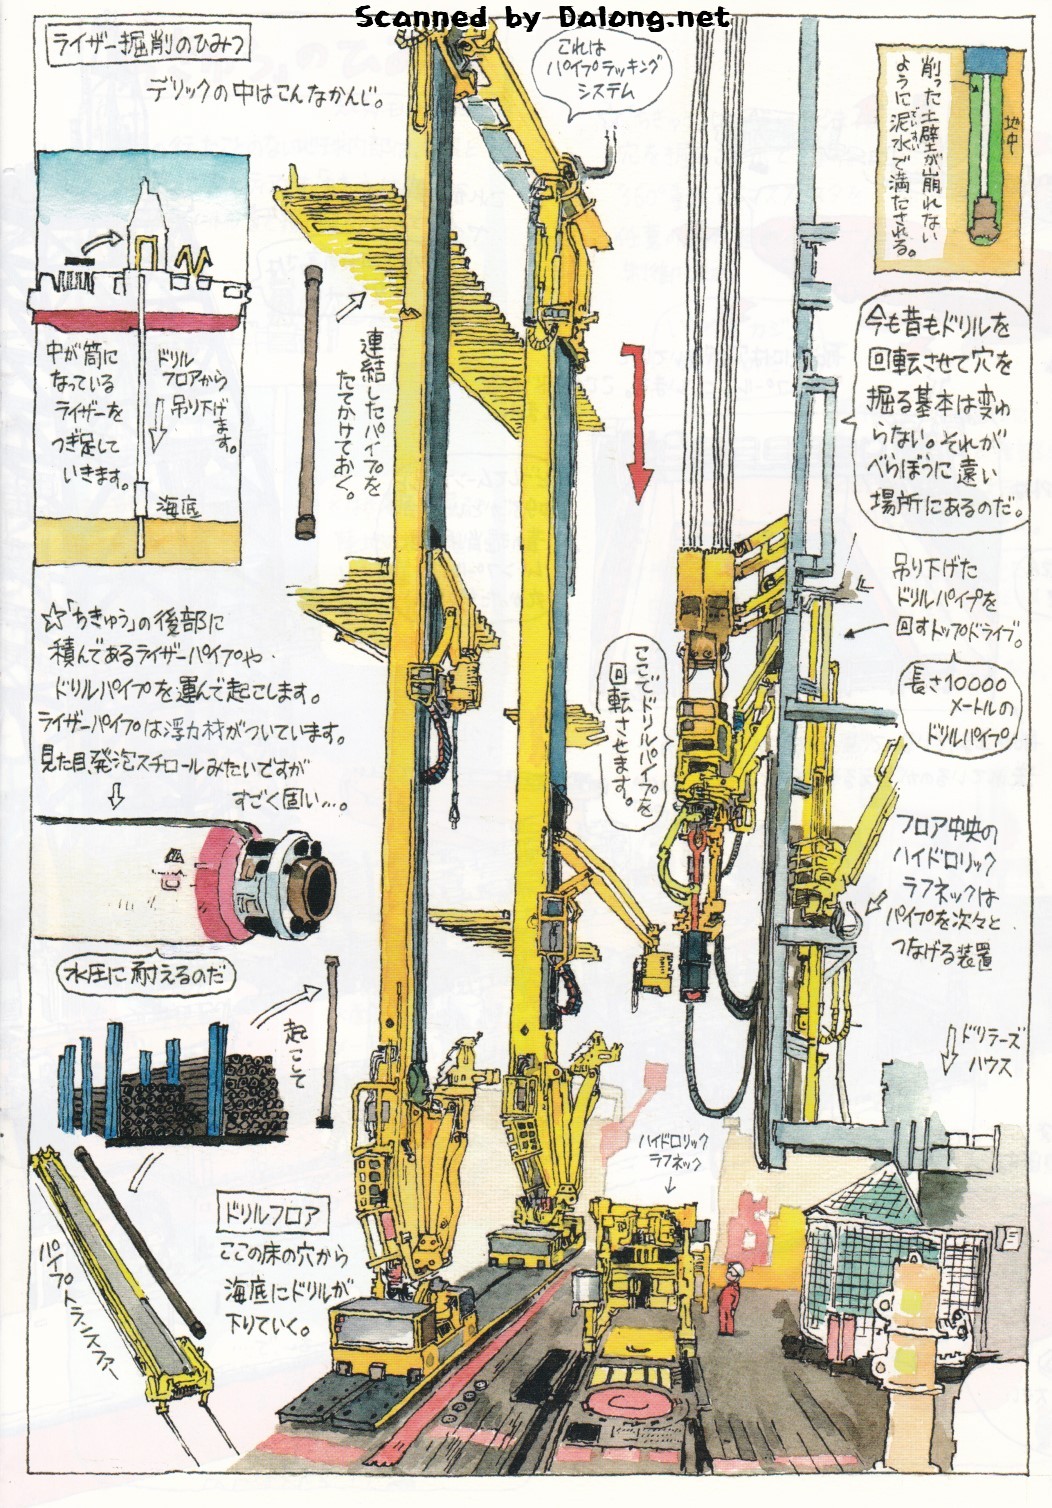 Scanned by Dalong.net
ライザー掘削のひみつ
デリックの中はこんなかんじ。
これは
パイプラッキング
システム
削った土壁が崩れない
ように泥水で満たされる。
でいすい
地中
中が筒に
なっている
ライザーを
つぎ足して
いきます。
ドリル
フロアから
吊り下げ
ます。
海底
連結したパイプを
たてかけておく。
今も昔もドリルを
回転させて穴を
掘る基本は変わ
らない。それが
べらぼうに遠い
場所にあるのだ。
吊り下げた
ドリルパイプを
回すトップドライブ。
長さ10000
メートルの
ドリルパイプ
ここでドリルパイプを
回転させます。
☆「ちきゅう」の後部に
積んであるライザーパイプや
ドリルパイプを運んで起こします。
ライザーパイプは浮力材がついています。
見た目、発泡スチロールみたいですが
すごく固い…。
水圧に耐えるのだ
起こして
パイプトランスファー
フロア中央の
ハイドロリック
ラフネックは
パイプを次々と
つなげる装置
ドリラーズ
ハウス
ハイドロリック
ラフネック
ドリルフロア
ここの床の穴から
海底にドリルが
下りていく。